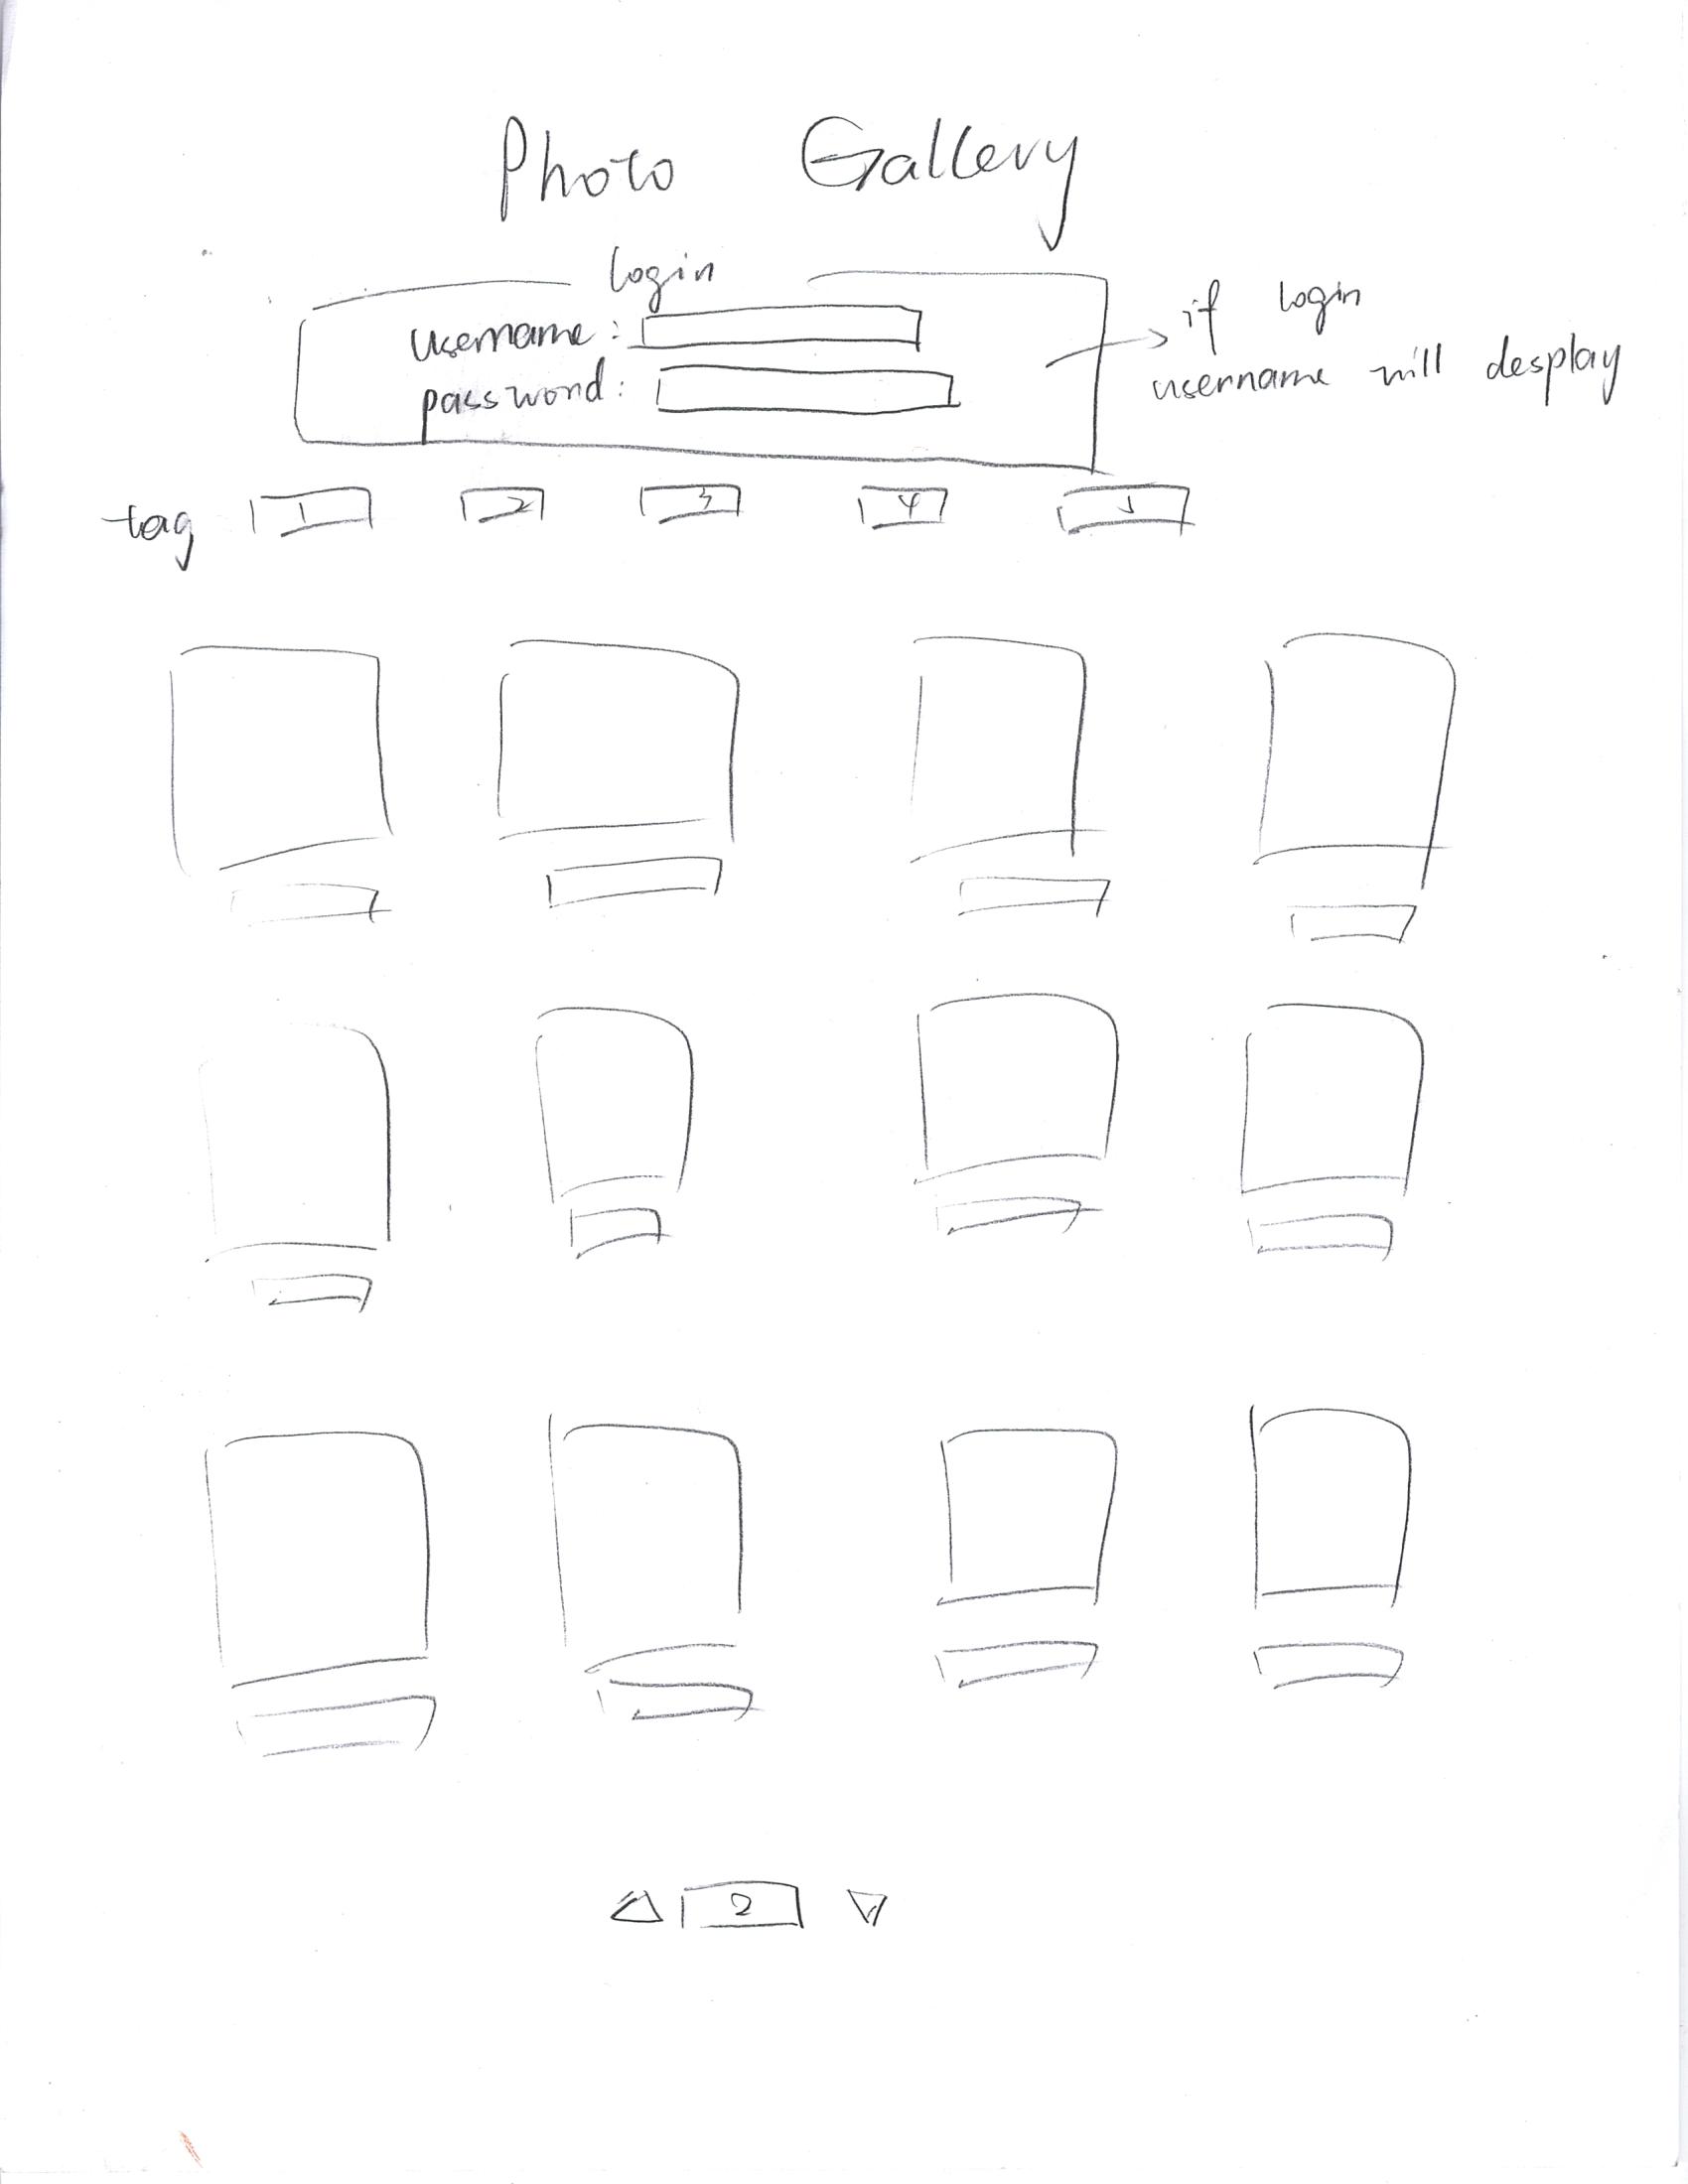 Photo Gallery
login
username:
password:
if login
username will desplay
tag 1 2 3 4 5
2